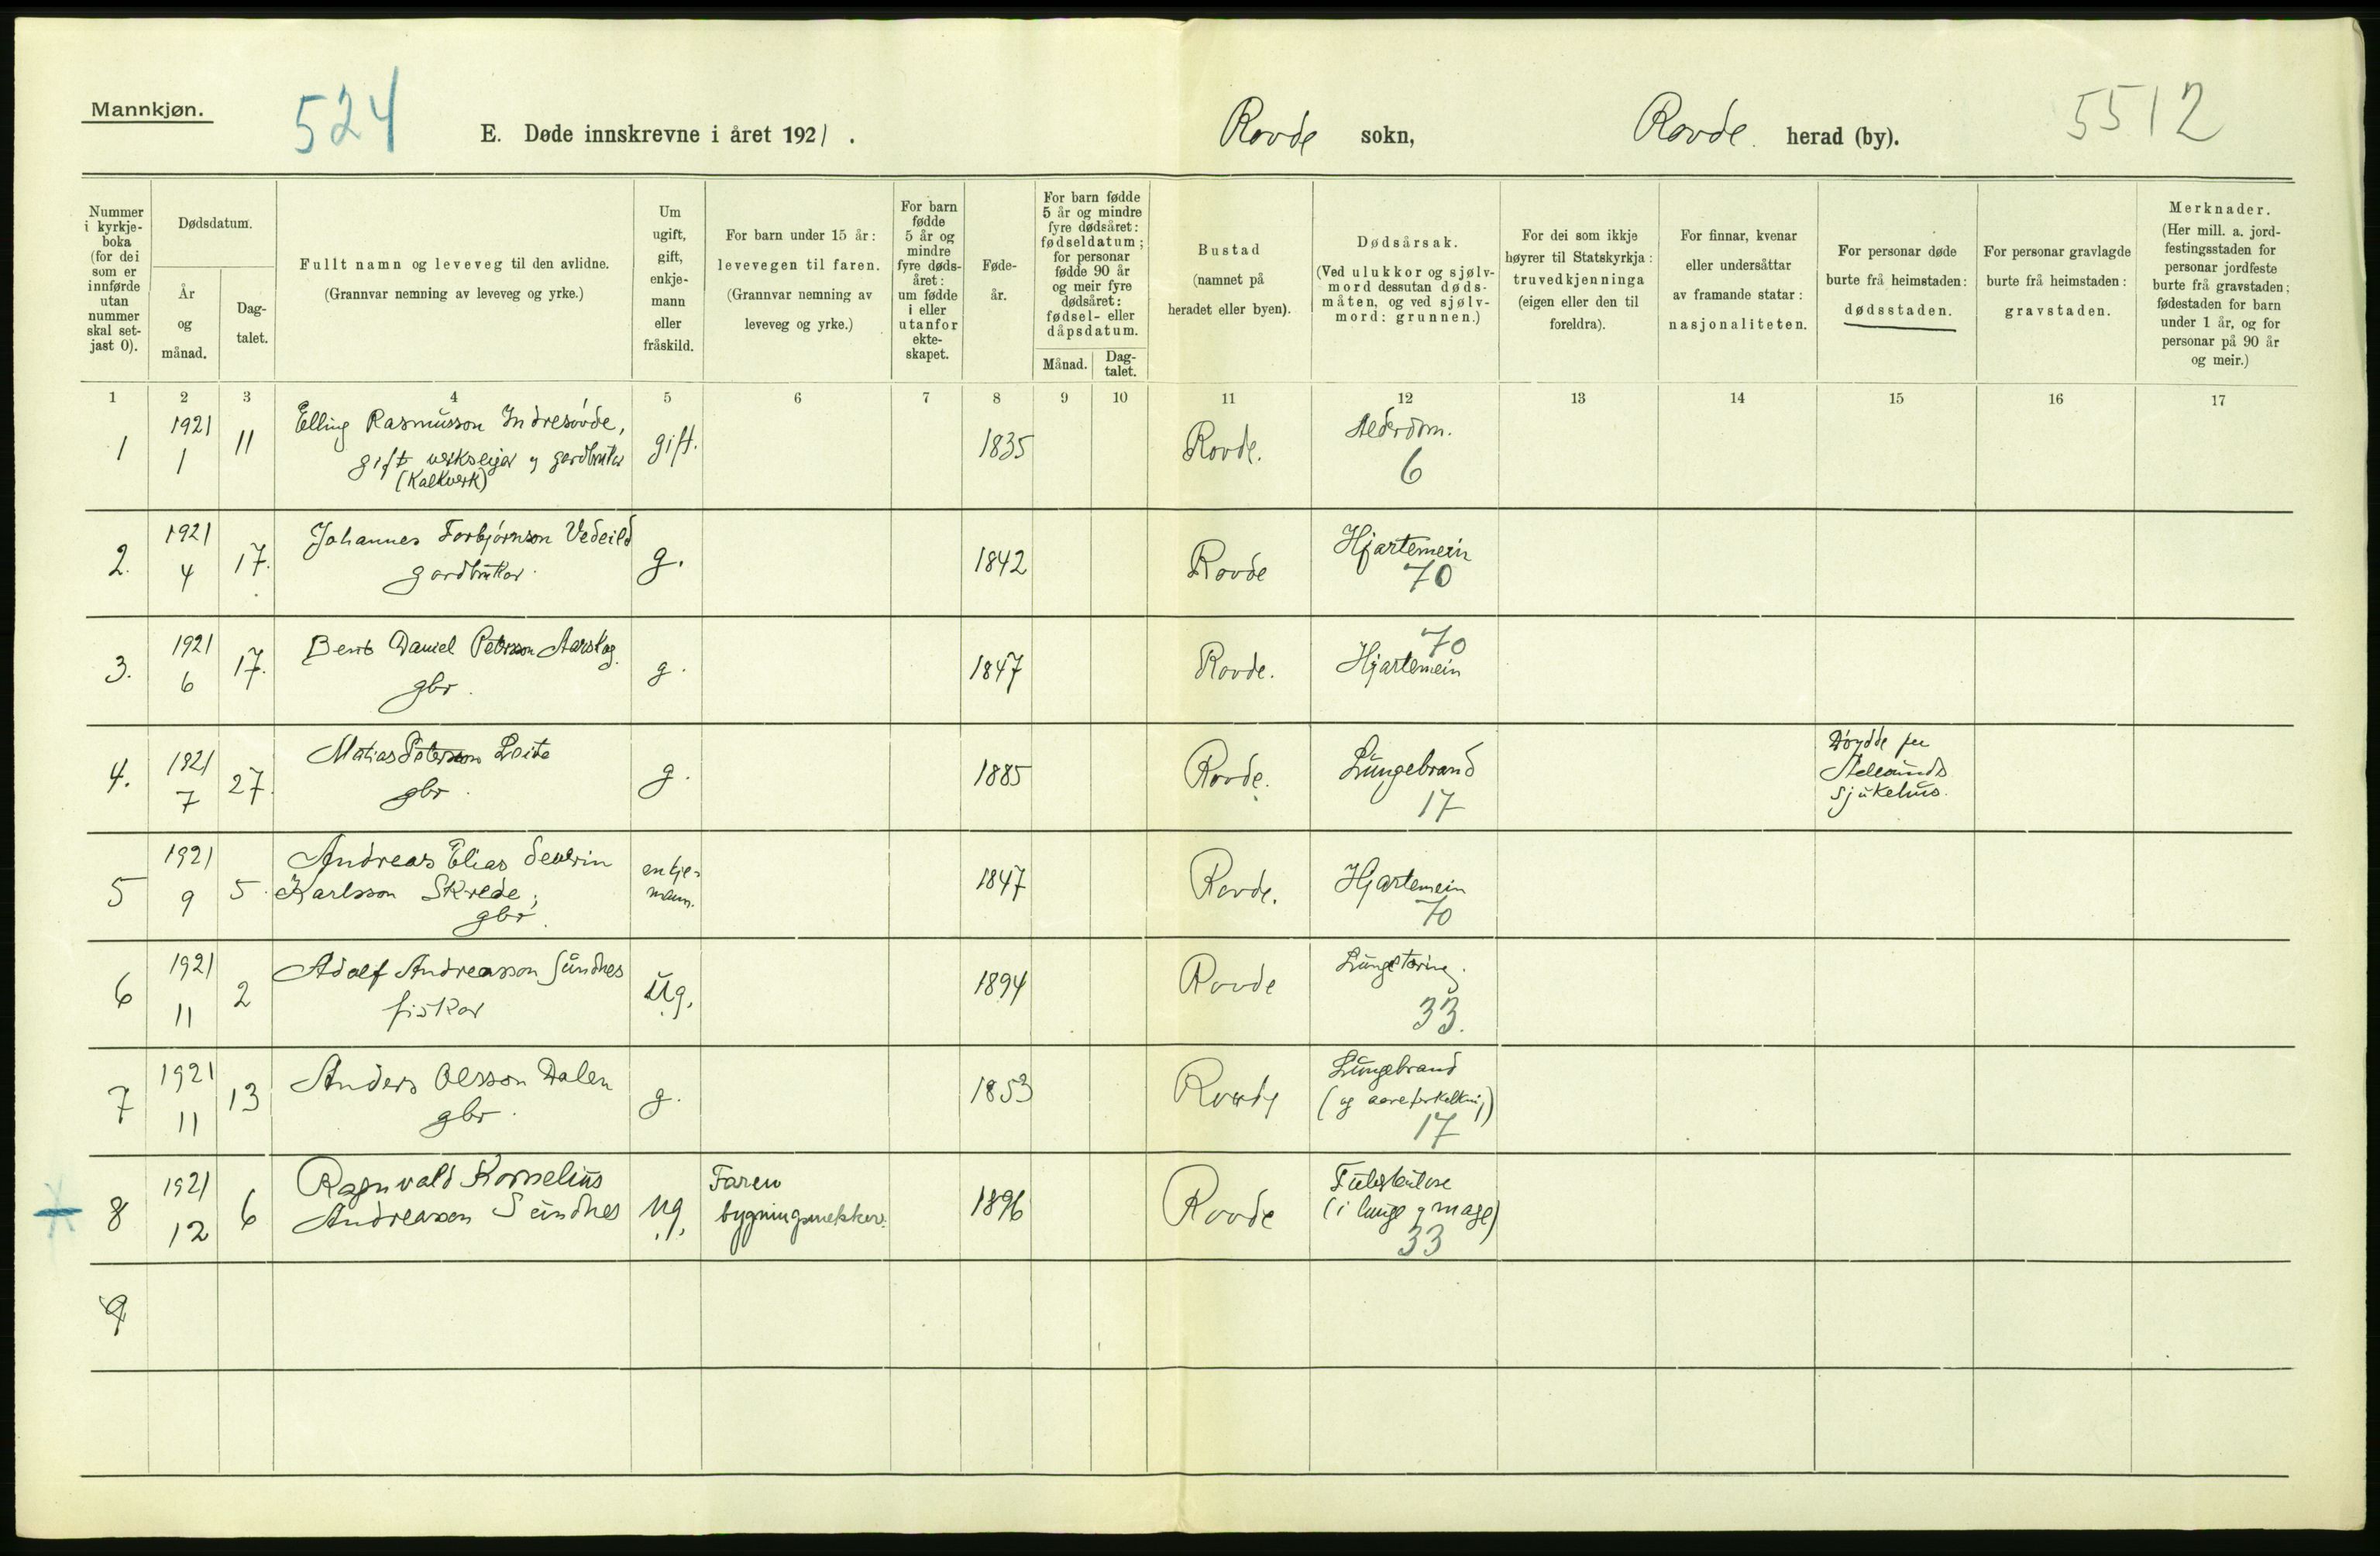 Mannkjøn.
524
E. Døde innskrevne i året 1921.
Rovde sokn,
Rovde herad (by).
5512
Nummer i kyrkje-boka (for dei som er innførde utan nummer skal set-jast 0).
Dødsdatum.
År og månad.
Dag-talet.
Fullt namn og leveveg til den avlidne.
(Grannvar nemning av leveveg og yrke.)
Um ugift, gift, enkje-mann eller fråskild.
For barn under 15 år: levevegen til faren.
(Grannvar nemning av leveveg og yrke.)
For barn fødde 5 år og mindre fyre døds-året: um fødde i eller utanfor ekte-skapet.
Føde-år.
For barn fødde 5 år og mindre fyre dødsåret: fødseldatum; for personar fødde 90 år og meir fyre dødsåret: fødsel- eller dåpsdatum.
Månad.
Dag-talet.
Bustad
(namnet på heradet eller byen).
Dødsårsak.
(Ved ulukkor og sjølv-mord dessutan døds-måten, og ved sjølv-mord: grunnen.)
For dei som ikkje høyrer til Statskyrkja: truvedkjenninga (eigen eller den til foreldra).
For finnar, kvenar eller undersåttar av framande statar: nasjonaliteten.
For personar døde burte frå heimstaden: dødsstaden.
For personar gravlagde burte frå heimstaden: gravstaden.
Merknader.
(Her mill. a. jord-festingsstaden for personar jordfeste burte frå gravstaden; fødestaden for barn under 1 år, og for personar på 90 år og meir.)
1 2 3 4 5 6 7 8 9 10 11 12 13 14 15 16 17
1 1921 1 11 Elling Rasmusson Indresovde, gift verkseigar og gardbrukar (Kalkverk) gift. 1835 Rovde. Alderdom. 6
2. 1921 4 17. Johannes Torbjørnson Vedeild gardbrukar. g. 1842 Rovde Hjartemein 70
3. 1921 6 17. Berit Daniel Petersson Aarskog. gbr. g. 1847 Rovde. 70 Hjartemein
4. 1921 7 27. Matias Peterson Loite gbr. g. 1885 Rovde. Lungebrand 17 Døydde paa Aalesunds sjukehus.
5 1921 9 5. Andreas Elias Severin Karlsson Skrede; gbr. enkje-mann. 1847 Rovde. Hjartemein 70
6 1921 11 2 Adolf Andreasson Sundnes fiskar Ug. 1894 Rovde Lungetæring. 33.
7 1921 11 13 Anders Olsson Dalen gbr. g. 1853 Rovde Lungebrand (og aareforkalkning) 17
8 1921 12 6 Ragnvald Kornelius Andreasson Sundnes ug. Faren bygningsnekker. 1896 Rovde Tuberkulose (i lunge og mage) 33
9